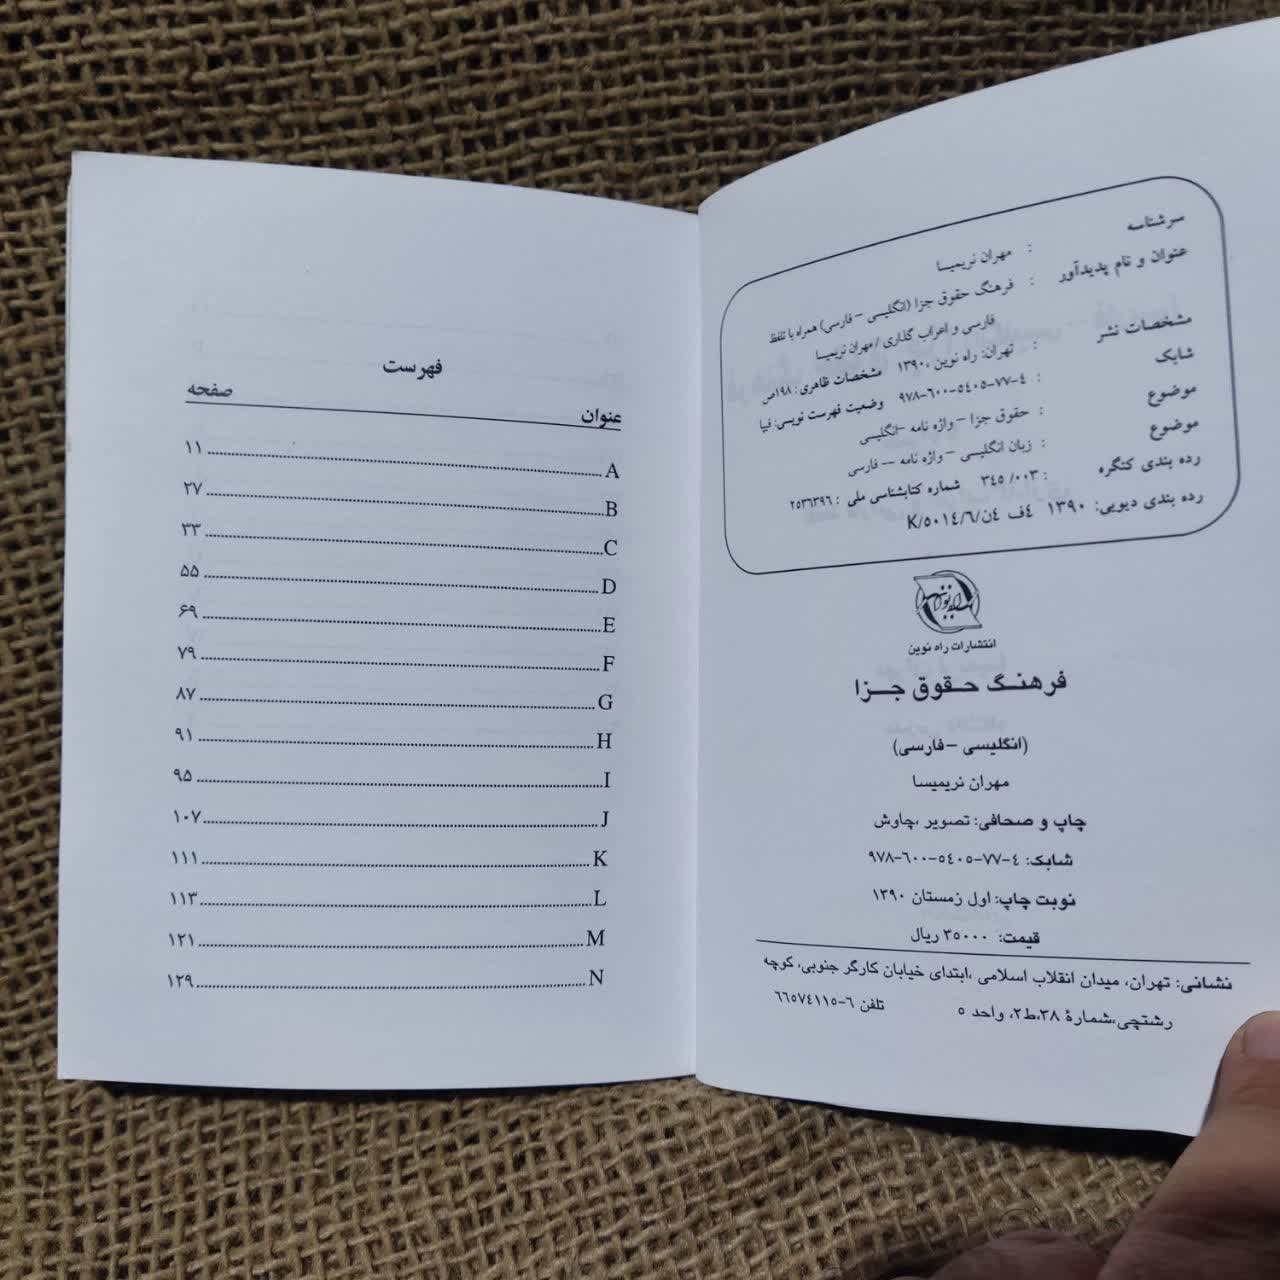 سرشناسه : مهران نریمیسا
عنوان و نام پدیدآور : فرهنگ حقوق جزا (انگلیسی - فارسی) همراه با تلفظ
فارسی و اعراب گذاری / مهران نریمیسا
مشخصات نشر : تهران: راه نوین ،۱۳۹۰ مشخصات ظاهری : ۱۹۸ص
شابک : ۹۷۸-۶۰۰-۵٤۰۵-۷۷-٤ وضعیت فهرست نویسی: فیپا
موضوع : حقوق جزا - واژه نامه -انگلیسی
موضوع : زبان انگلیسی - واژه نامه -- فارسی
رده بندی کنگره : ۳٤۵ /۰۰۳ شماره کتابشناسی ملی : ۲۵۳۶۳۹۶
رده بندی دیویی: ۱۳۹۰ ٤ف ٤ن/۶/K/۵۰۱٤
انتشارات راه نوین
فرهنگ حقوق جزا
(انگلیسی - فارسی)
مهران نریمیسا
چاپ و صحافی: تصویر ،چاوش
شابک: ۹۷۸-۶۰۰-۵٤۰۵-۷۷-٤
نوبت چاپ: اول زمستان ۱۳۹۰
قیمت: ۳۵۰۰۰ ریال
نشانی: تهران، میدان انقلاب اسلامی ،ابتدای خیابان کارگر جنوبی، کوچه
رشتچی،شمارۀ ۳۸،ط۲، واحد ۵ تلفن ۶-۶۶۵۷٤۱۱۵
فهرست
عنوان صفحه
A ۱۱
B ۲۷
C ۳۳
D ۵۵
E ۶۹
F ۷۹
G ۸۷
H ۹۱
I ۹۵
J ۱۰۷
K ۱۱۱
L ۱۱۳
M ۱۲۱
N ۱۲۹